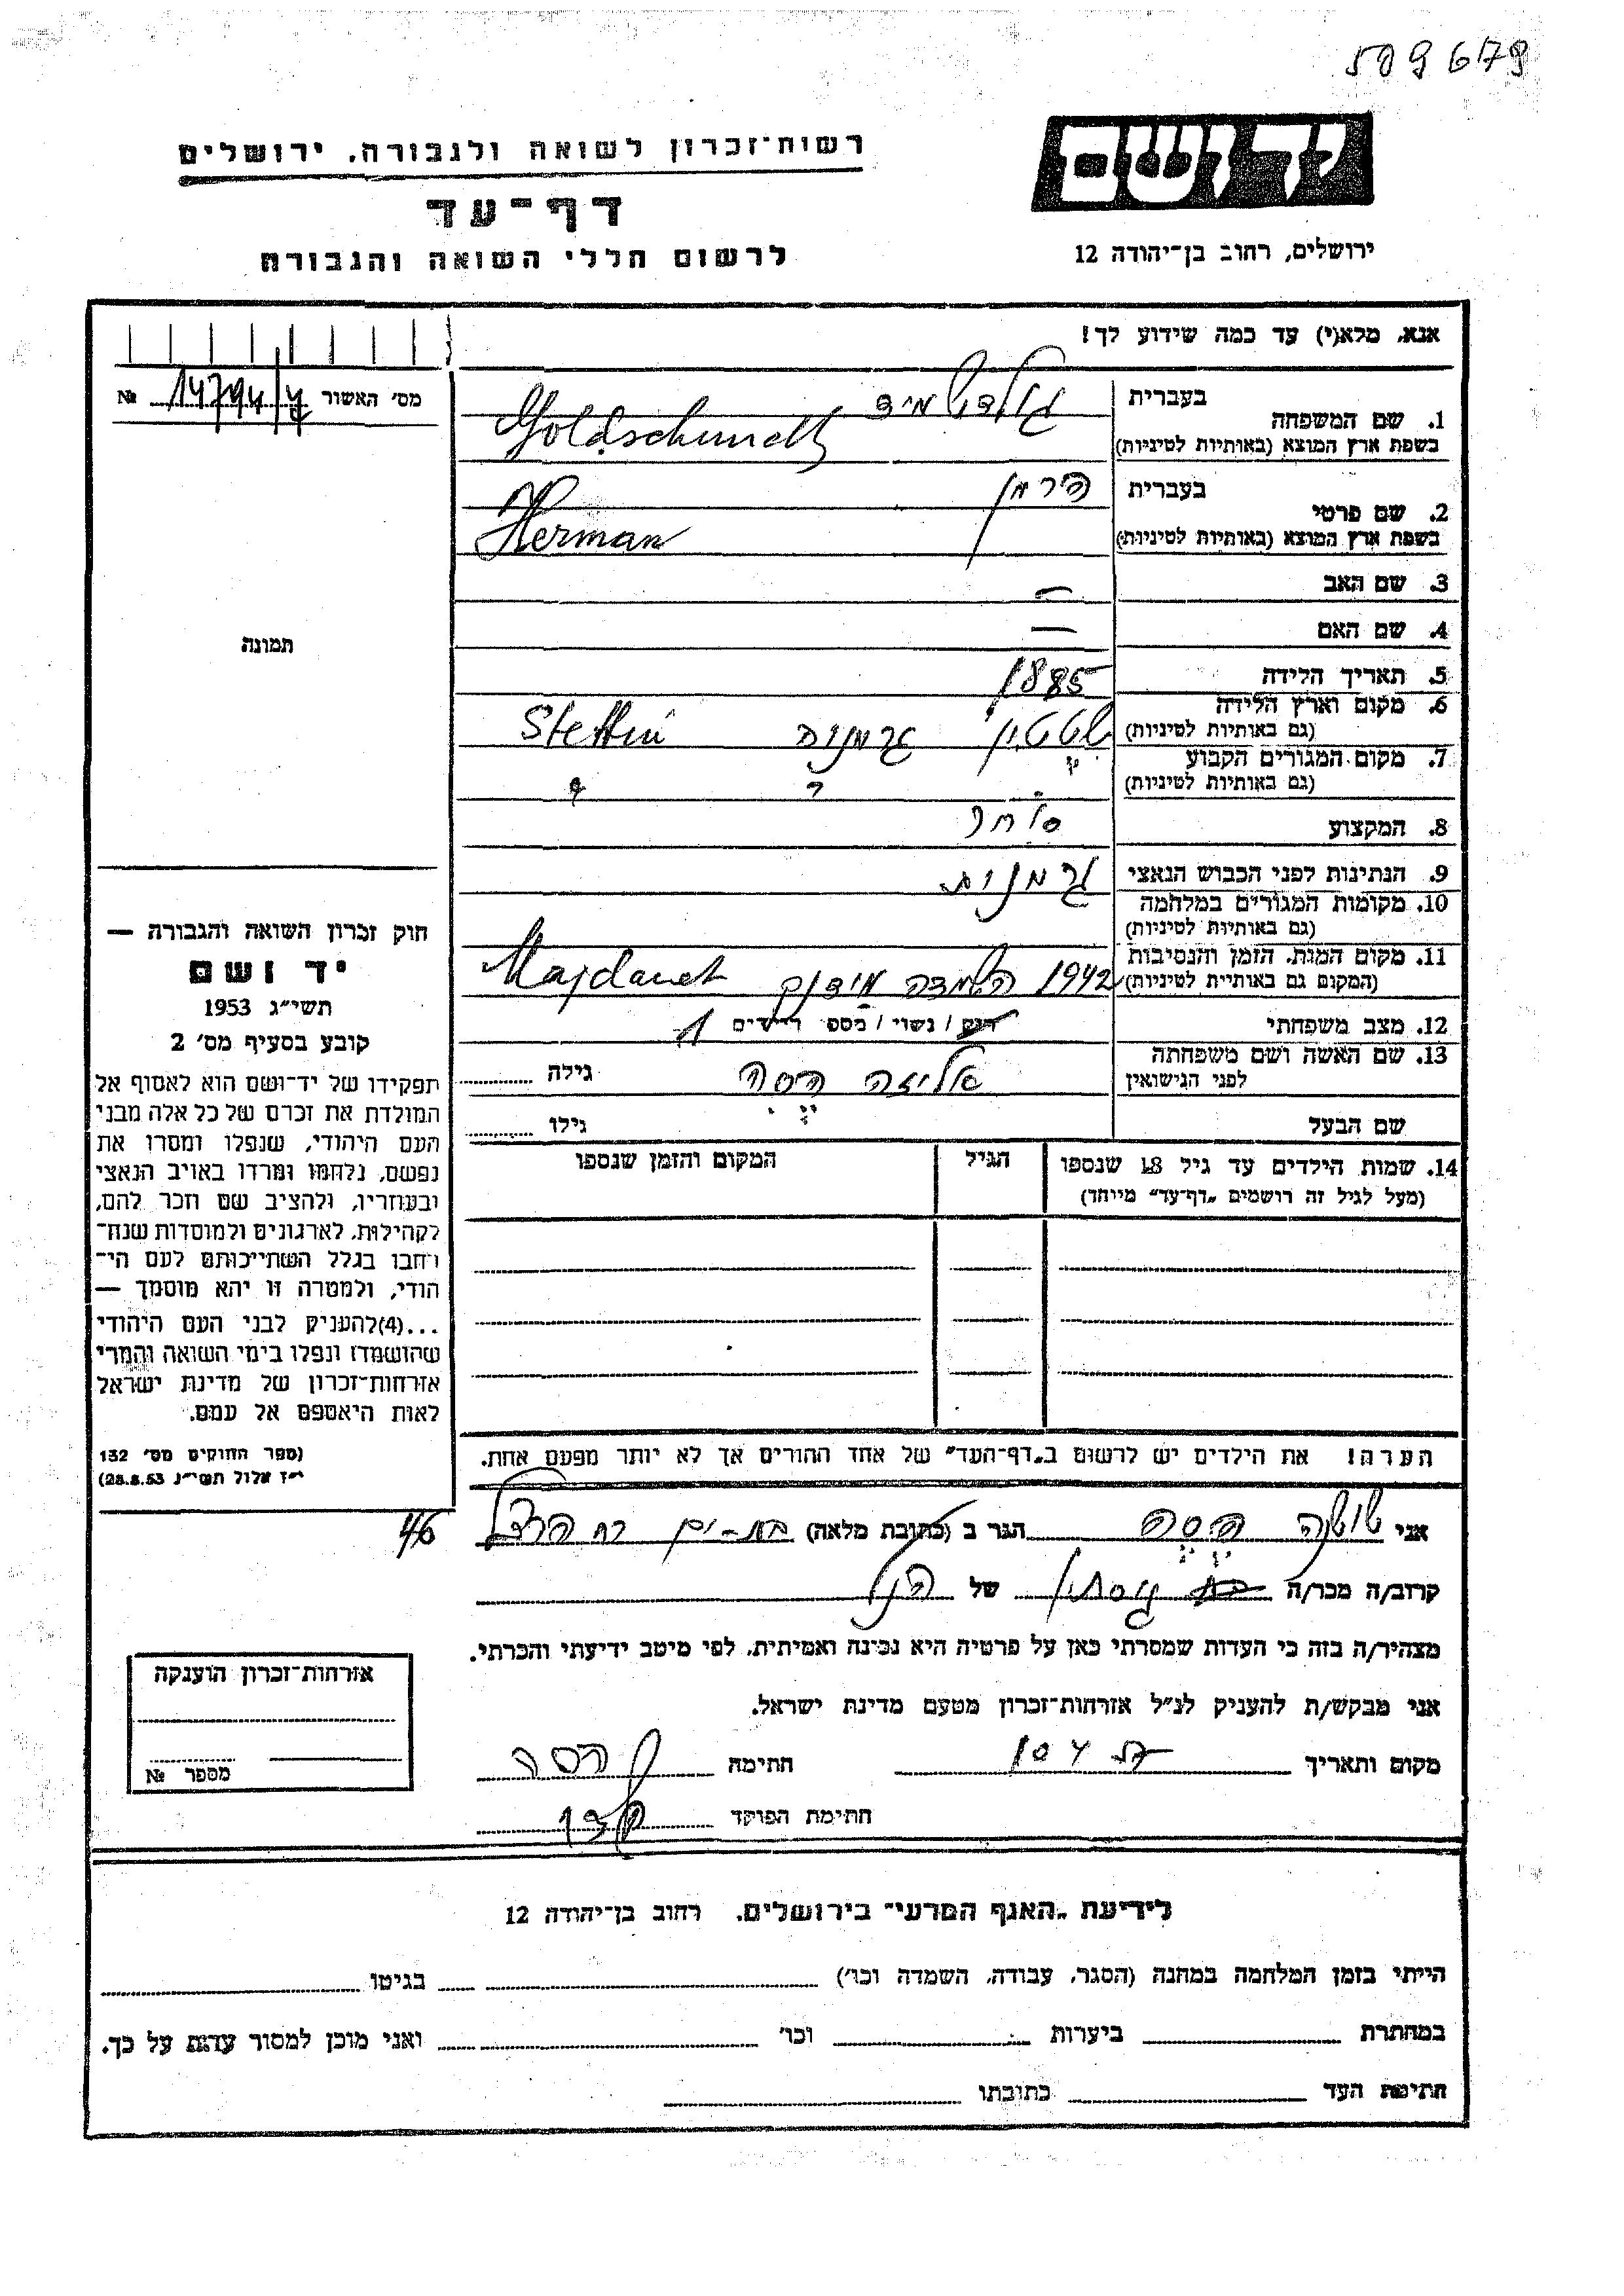 509679
רשות־זכרון לשואה ולגבורה, ירושלים
יד ושם
דף־עד
ירושלים, רחוב בן־יהודה 12
לרשום חללי השואה והגבורה
אנא, מלא(י) עד כמה שידוע לך!
מס׳ האשור 14794/ № 
1. שם המשפחה
בעברית גולדשמיד
בשפת ארץ המוצא (באותיות לטיניות) Goldschmidt
2. שם פרטי
בעברית הירמן
בשפת ארץ המוצא (באותיות לטיניות) Herman
3. שם האב —
4. שם האם —
תמונה
5. תאריך הלידה 1885
6. מקום וארץ הלידה
(גם באותיות לטיניות) שטטין גרמניה Stettin
7. מקום המגורים הקבוע
(גם באותיות לטיניות)
8. המקצוע סוחר
9. הנתינות לפני הכבוש הנאצי גרמנית
10. מקומות המגורים במלחמה
(גם באותיות לטיניות)
11. מקום המות, הזמן והנסיבות
(המקום גם באותיות לטיניות) 1942 השמדה מידנק Majdanek
12. מצב משפחתי רווק / נשוי / מספר ילדים 1
13. שם האשה ושם משפחתה
לפני הנישואין אליזה הסה גילה
שם הבעל גילו
14. שמות הילדים עד גיל 18 שנספו
(מעל לגיל זה רושמים „דף־עד״ מיוחד)
הגיל
המקום והזמן שנספו
חוק זכרון השואה והגבורה —
יד ושם
תשי״ג 1953
קובע בסעיף מס׳ 2
תפקידו של יד־ושם הוא לאסוף אל
המולדת את זכרם של כל אלה מבני
העם היהודי, שנפלו ומסרו את
נפשם, נלחמו ומרדו באויב הנאצי
ובעוזריו, ולהציב שם וזכר להם,
לקהילות, לארגונים ולמוסדות שנח־
רבו בגלל השתייכותם לעם הי־
הודי, ולמטרה זו יהא מוסמך —
...(4)להעניק לבני העם היהודי
שהושמדו ונפלו בימי השואה והמרי
אזרחות־זכרון של מדינת ישראל
לאות היאספם אל עמם.
(ספר החוקים מס׳ 132
י״ז אלול תשי״ג 28.8.53)
הערה! את הילדים יש לרשום ב„דף־העד״ של אחד ההורים אך לא יותר מפעם אחת.
אני הסה הגר ב (כתובת מלאה) בת-ים רח הרצל
קרוב/ה מכר/ה גיסתו של הנ״ל
מצהיר/ה בזה כי העדות שמסרתי כאן על פרטיה היא נכונה ואמיתית, לפי מיטב ידיעתי והכרתי.
אני מבקש/ת להעניק לנ״ל אזרחות־זכרון מטעם מדינת ישראל.
מקום ותאריך חתימה הסה
חתימת הפוקד
אזרחות־זכרון הוענקה
מספר №
לידיעת „האגף המדעי״ בירושלים, רחוב בן־יהודה 12
הייתי בזמן המלחמה במחנה (הסגר, עבודה, השמדה וכו׳) בגיטו
במחתרת ביערות וכו׳ ואני מוכן למסור עדות על כך.
חתימת העד כתובתו